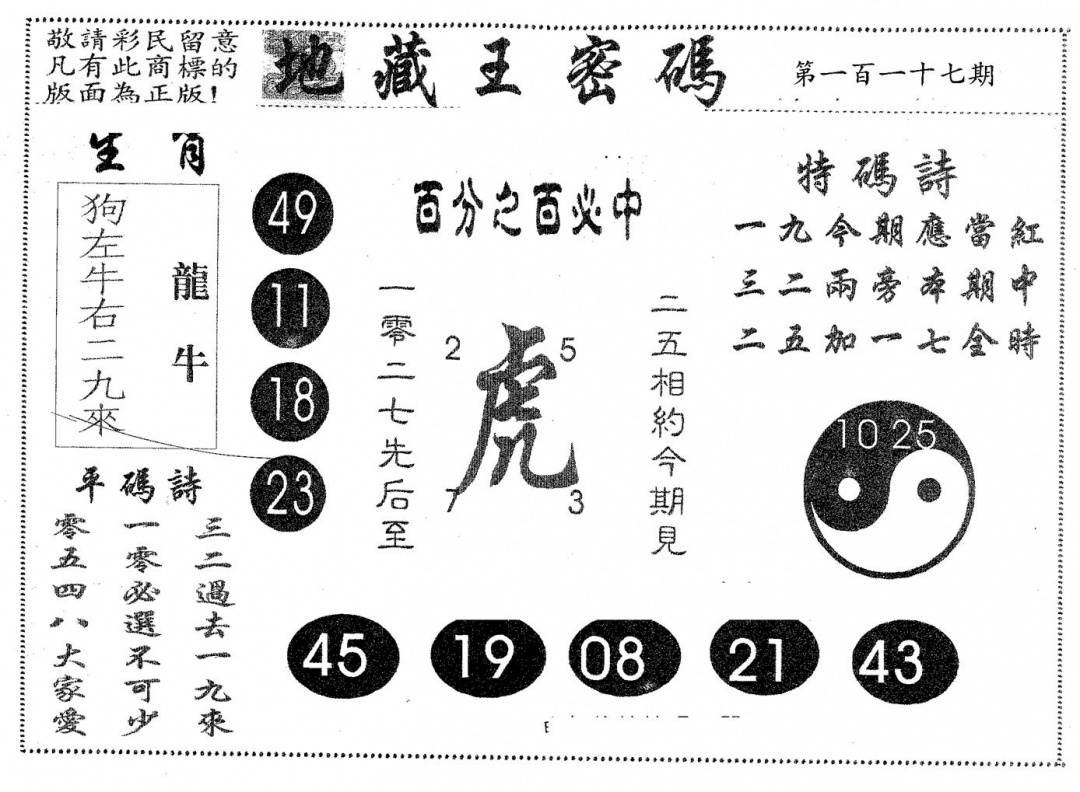 敬請彩民留意
凡有此商標的
版面為正版!
地藏王密碼
第一百一十七期
生肖
狗左牛右二九來
龍牛
49
11
18
23
百分之百必中
一零二七先后至
2
5
虎
7
3
二五相約今期見
特碼詩
一九今期應當紅
三二兩旁本期中
二五加一七全時
10 25
平碼詩
三二過去一九來
一零必選不可少
零五四八大家愛
45
19
08
21
43